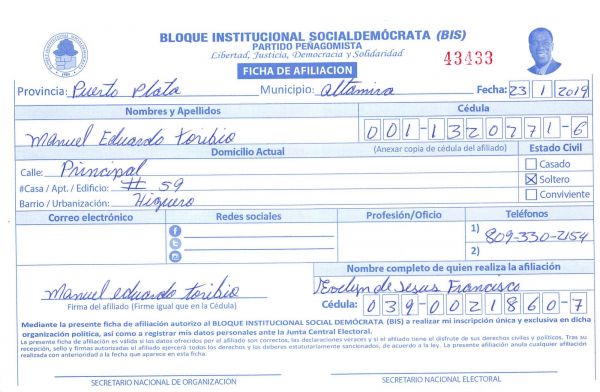 BLOQUE INSTITUCIONAL SOCIALDEMÓCRATA (BIS)
PARTIDO PEÑAGOMISTA
Libertad, Justicia, Democracia y Solidaridad
43433
FICHA DE AFILIACION
Provincia: Puerto Plata Municipio: Altamira Fecha: 23 1 2019
Nombres y Apellidos Cédula
Manuel Eduardo Toribio 001-1320771-6
Domicilio Actual (Anexar copia de cédula del afiliado) Estado Civil
Calle: Principal Casado
#Casa / Apt. / Edificio: # 59 Soltero
Barrio / Urbanización: Higuero Conviviente
Correo electrónico Redes sociales Profesión/Oficio Teléfonos
1) 809-330-2154
2)
Nombre completo de quien realiza la afiliación
Manuel eduardo toribio Evelyn de Jesus Francisco
Firma del afiliado (Firme igual que en la Cédula) Cédula: 039-0021860-7
Mediante la presente ficha de afiliación autorizo al BLOQUE INSTITUCIONAL SOCIAL DEMÓCRATA (BIS) a realizar mi inscripción única y exclusiva en dicha
organización política, así como a registrar mis datos personales ante la Junta Central Electoral.
La presente ficha de afiliación es válida si los datos ofrecidos por el afiliado son correctos, las declaraciones veraces y si el afiliado tiene el disfrute de sus derechos civiles y políticos. Tras su
recepción, sello y firmas autorizadas el afiliado ejercerá todos los derechos y los deberes estatutariamente sancionados, de acuerdo a la ley. La presente afiliación anula cualquier afiliación
realizada con anterioridad a la fecha que aparece en esta ficha.
SECRETARIO NACIONAL DE ORGANIZACIÓN SECRETARIO NACIONAL ELECTORAL